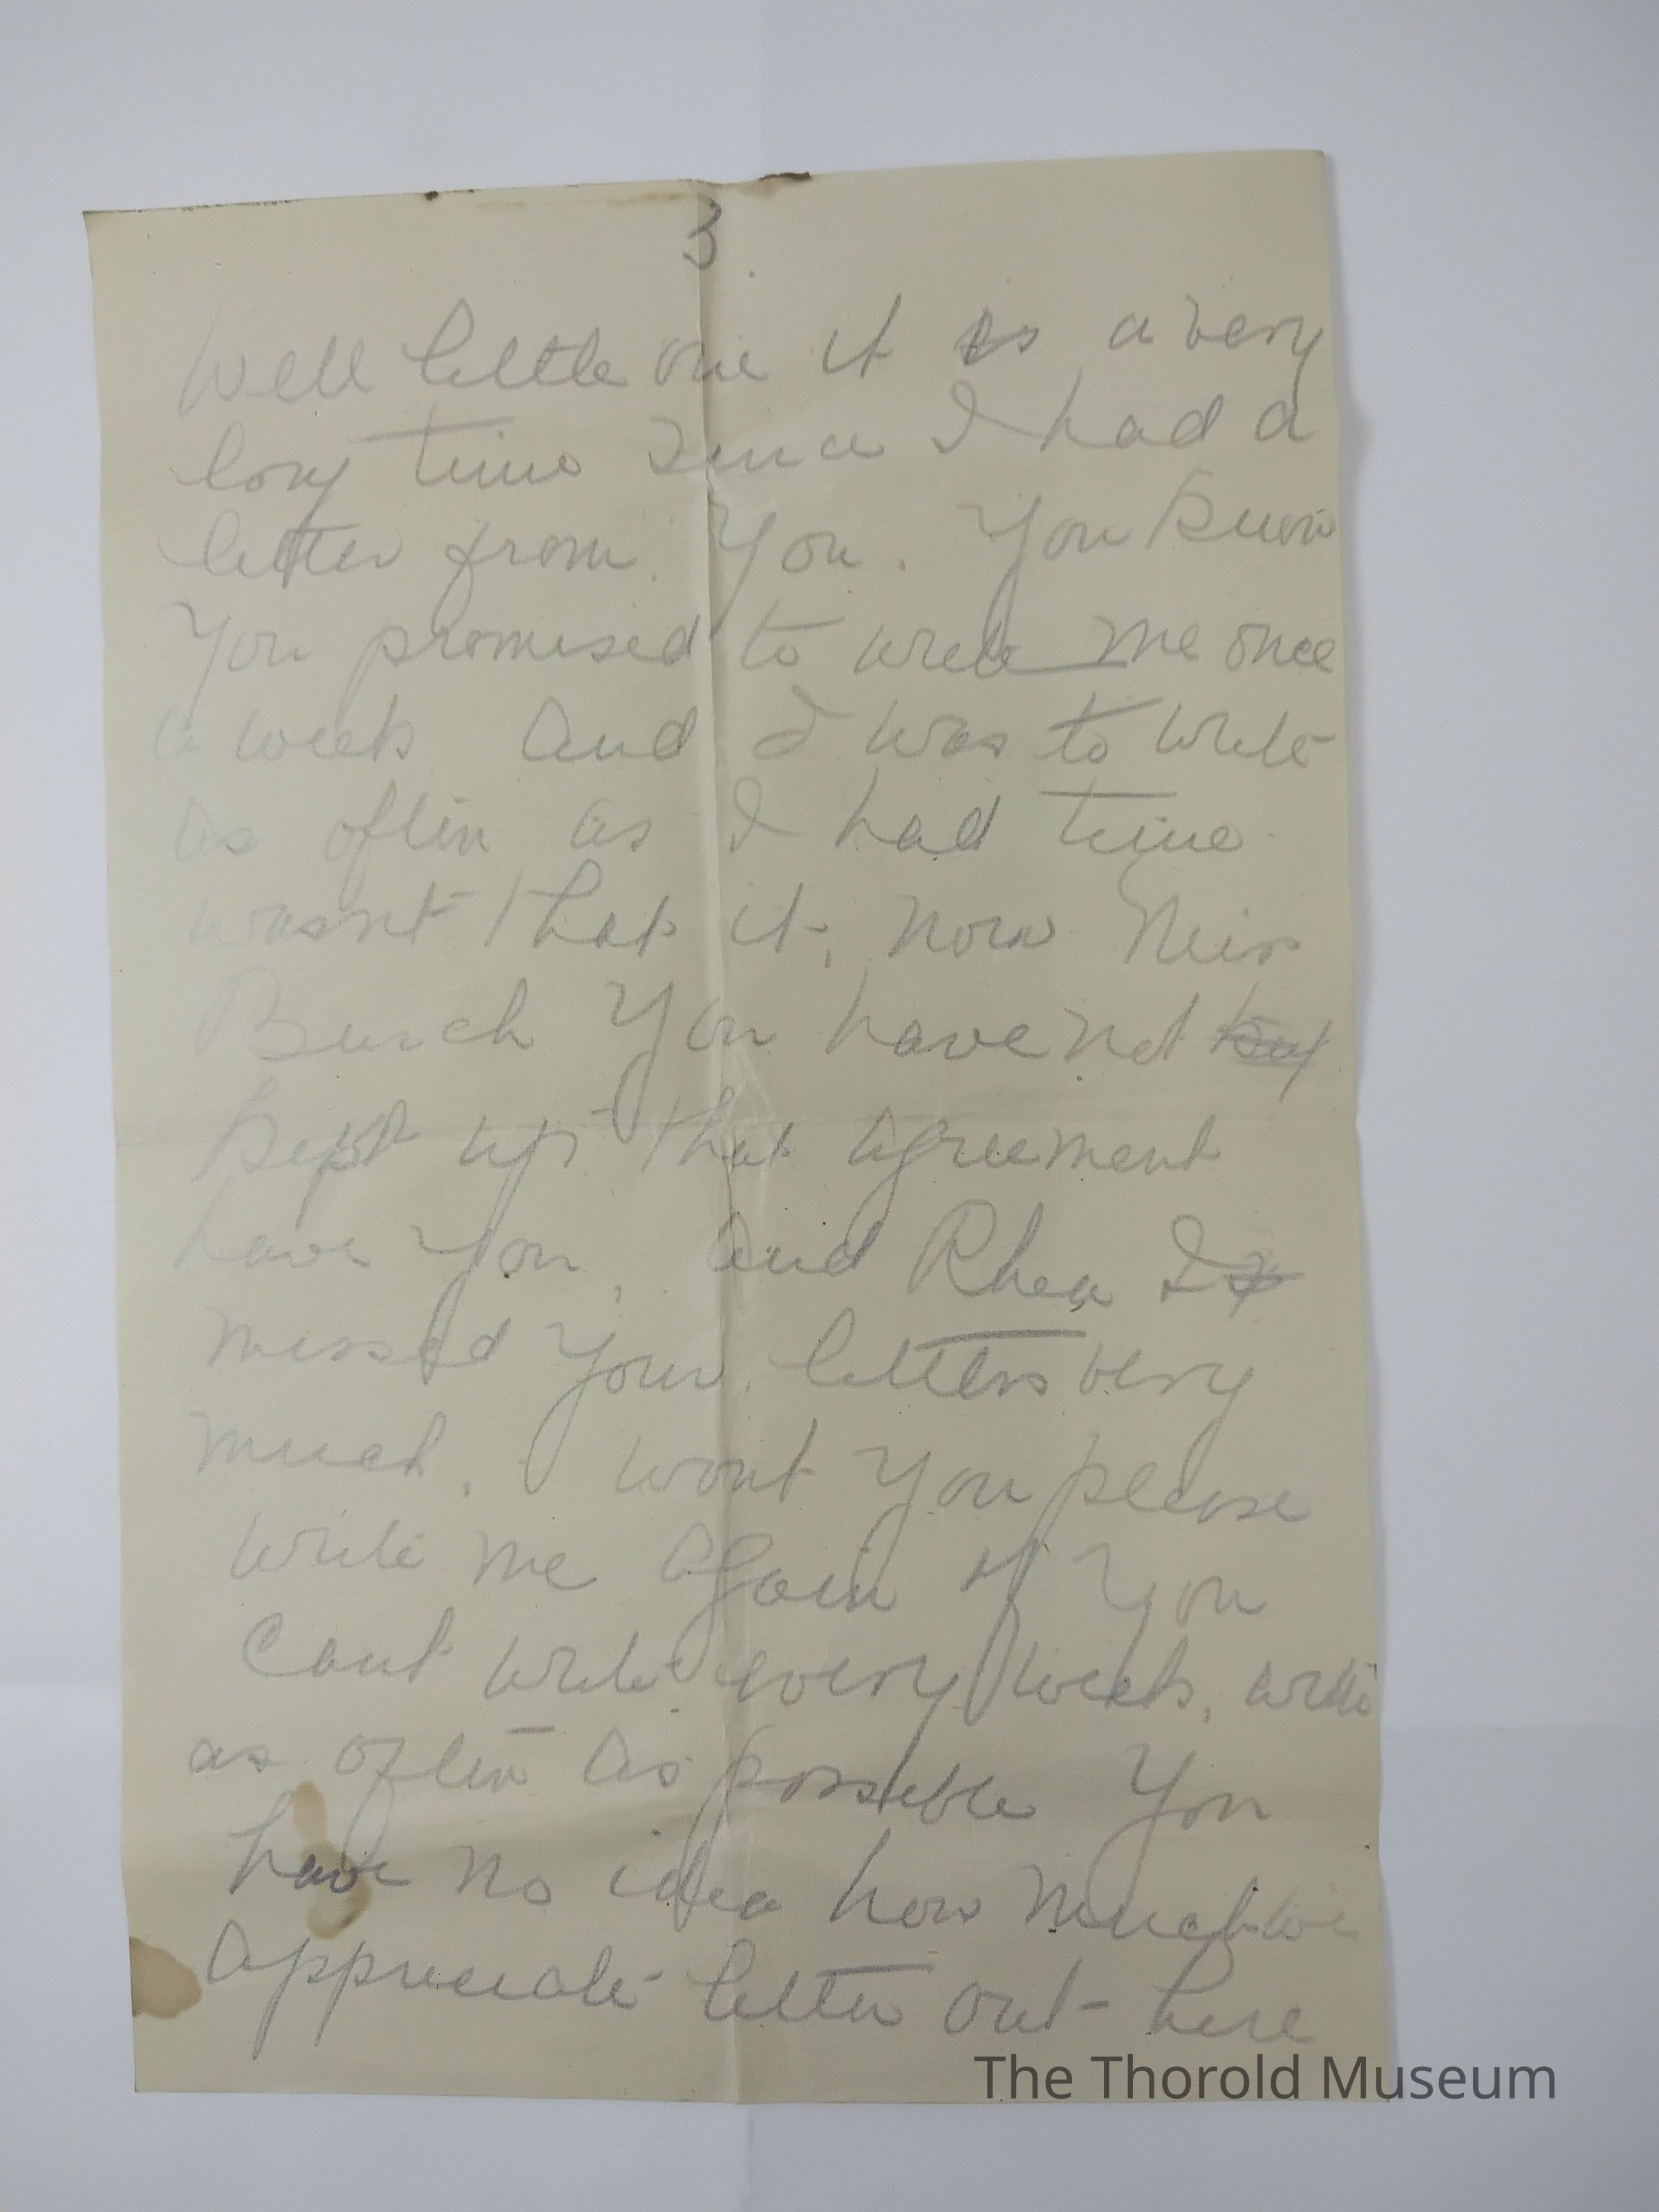 3.
Well little one it is a very
long time since I had a
letter from you. You know
You promised to write me once
a week and I was to write
as often as I had time
wasnt that it, now Miss
You have not
kept up that agreement
have you, and Rhea I
missed your letters very
much. wont you please
write me again if you
cant write every week, write
as often as possible You
have no idea how much we
appreciate letter out here
The Thorold Museum